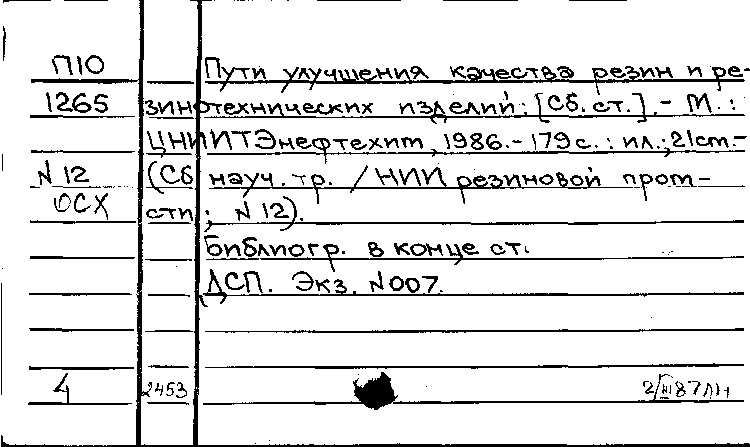 П10 Пути улучшения качества резин и ре-
1265 зинотехнических изделий: [Сб. ст.]. - М.:
ЦНИИТЭнефтехим, 1986. - 179 с.: ил.; 21 см. -
N 12 (Сб. науч. тр. / НИИ резиновой пром-
ОСХ сти; N 12).
Библиогр. в конце ст.
ДСП. Экз. N 007.
4 2453 2/III 87